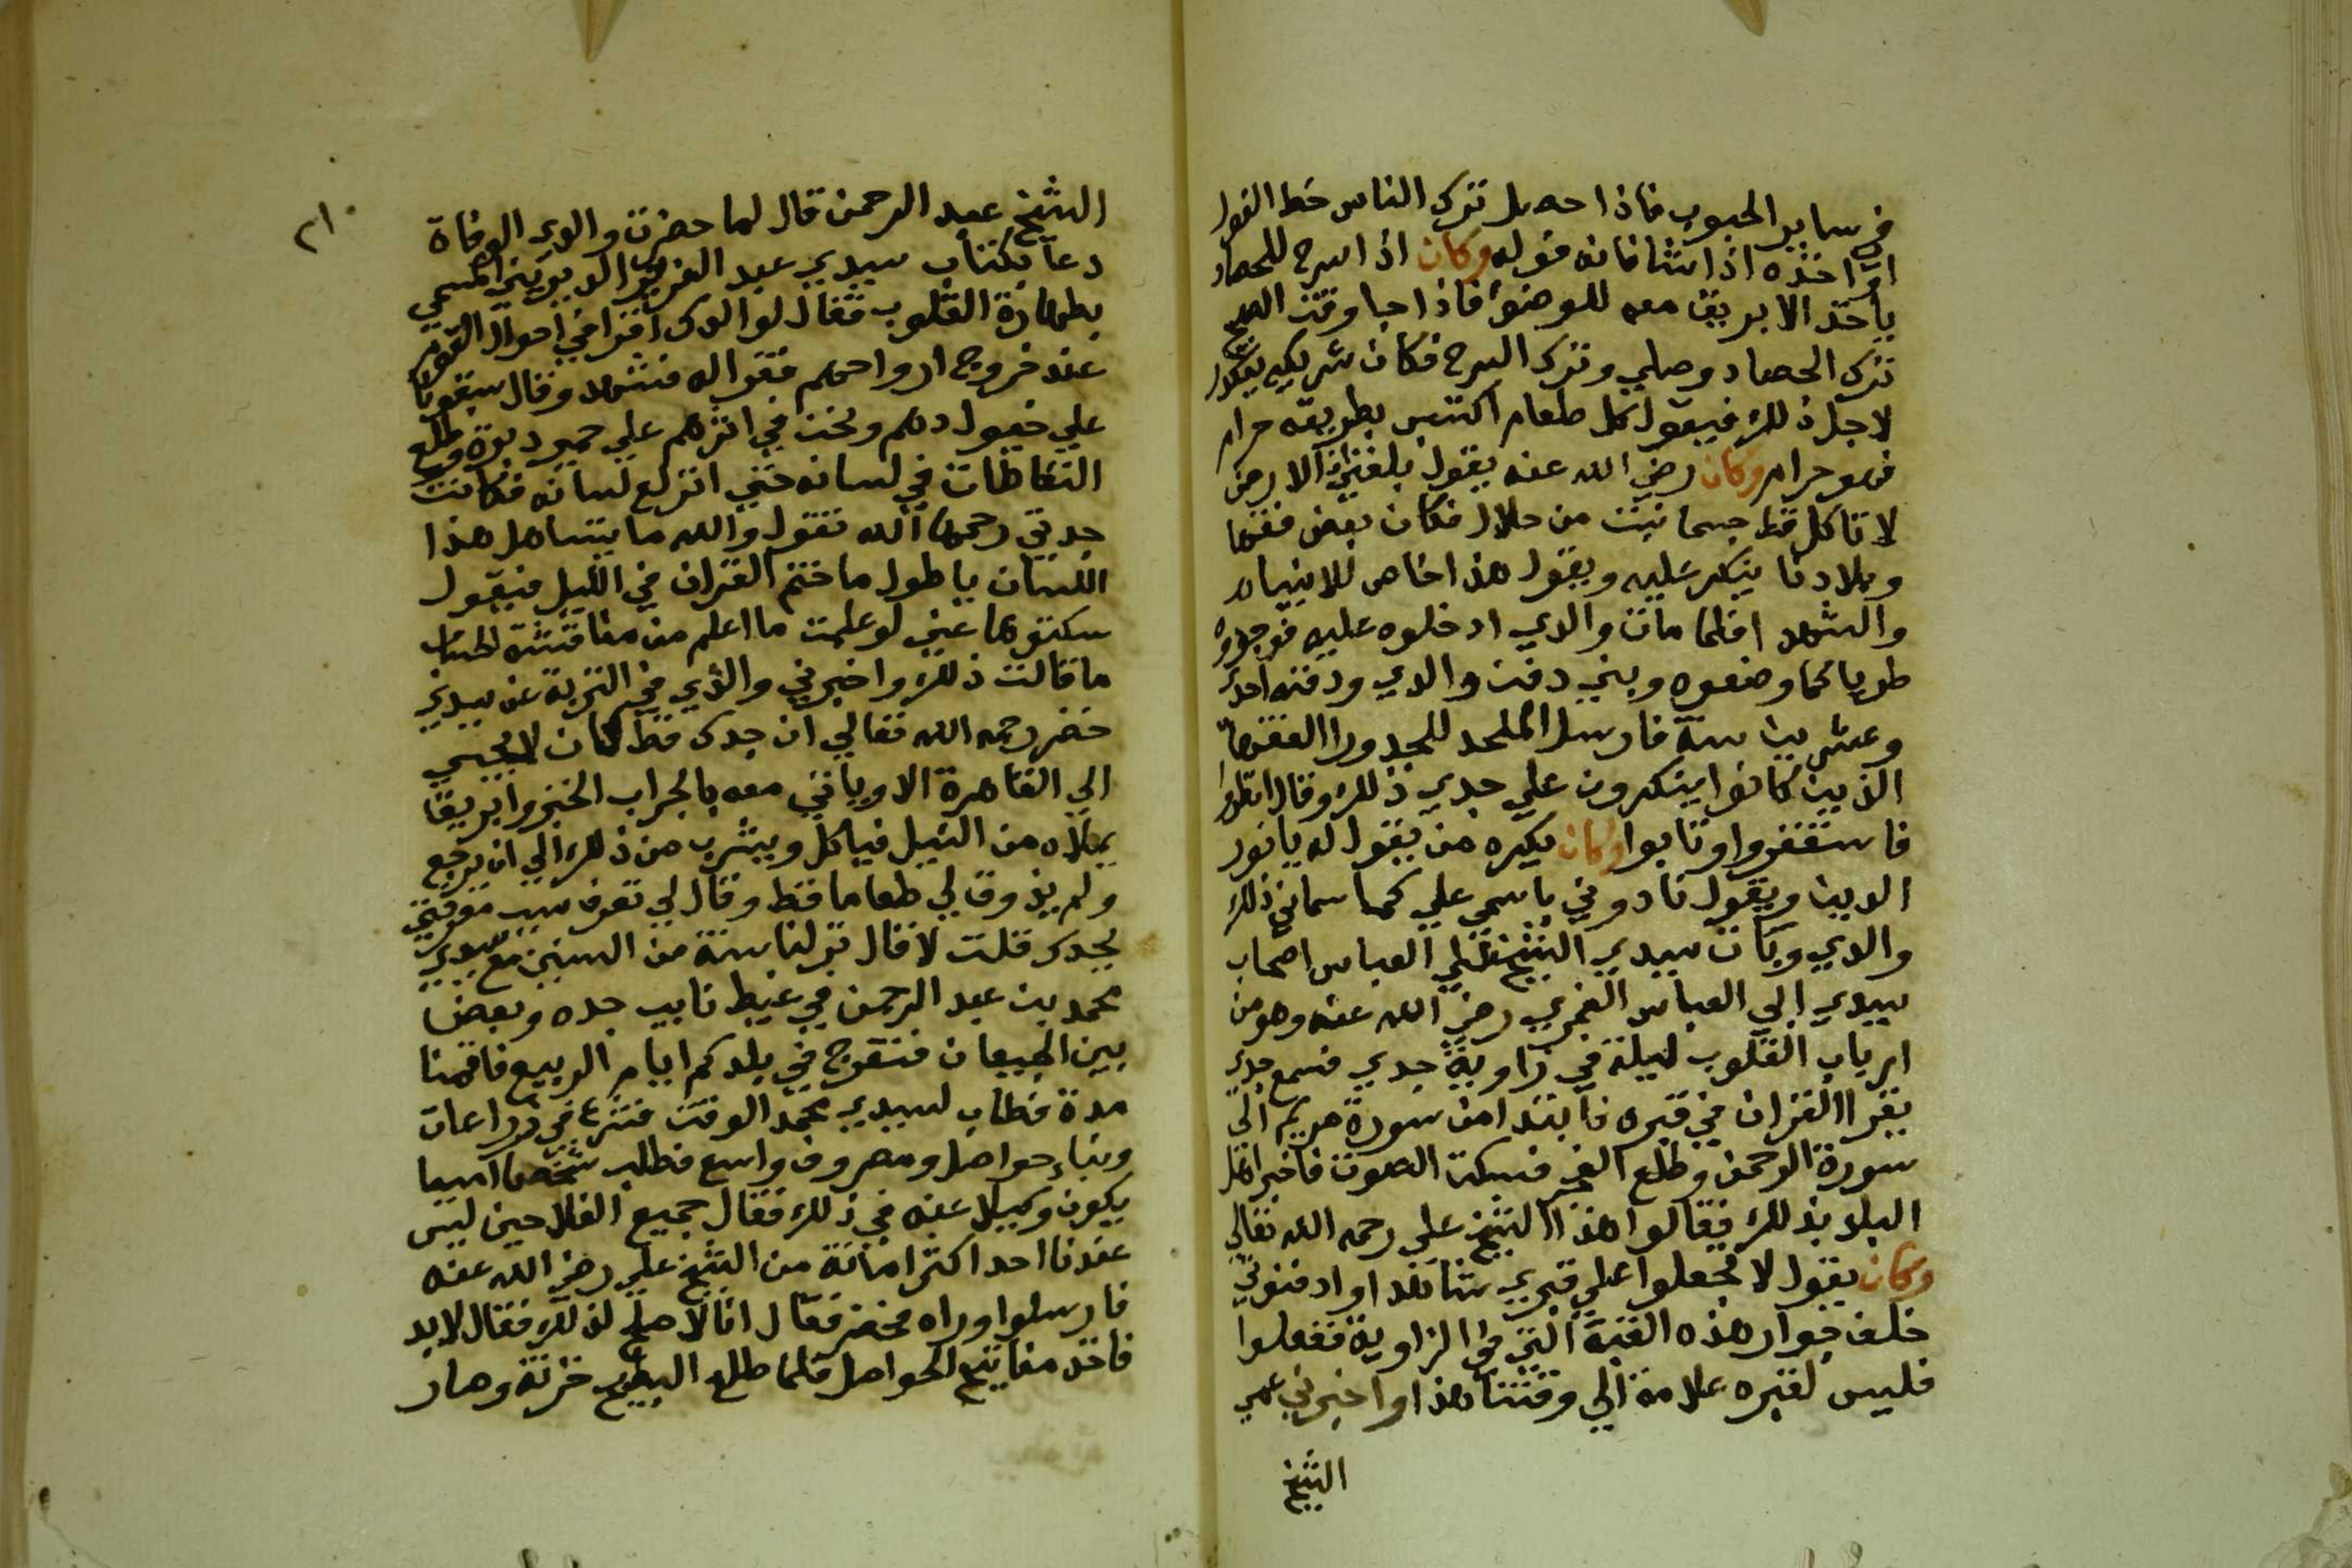 في ساير الحبوب فاذا حصل ترك الناس خط الفول
او اخذه اذا شا فانه فوله وكان اذا اسرح للحصاد
ياخذ الابريق معه للوضوء فاذا جا وقت الصبح
ترك الحصاد وصلي وترك السرح فكان شريكه يتكدر
لاجل ذلك فيقول كل طعام اكتسب بطريقة حرام
فهو حرام وكان رضي الله عنه يقول بلغني ان الارض
لا تاكل قط جسما نبت من حلال فكان بعض فقها
وبلادنا ينكر عليه ويقول هذا خاص للانبياء
والشهدا فلما مات والدي ادخلوه عليه فوجدوه
طريا كما وضعوه وبين دفن والدي ودفنه احد
وعشرين سنة فارسل الملحد للجد ورا الفقهاء
الذين كانوا ينكرون علي جدي ذلك وقال انظروا
فاستغفروا وتابوا وكان يكره من يقول له يا نور
الدين ويقول نادوني باسمي علي كما سماني ذلك
والدي وكان سيدي الشيخ العباس اصحاب
سيدي ابي العباس الغمري رضي الله عنه وهو من
ارباب القلوب ليلة في زاوية جدي فسمع جدي
يقرا القران في قبره فابتدا من سورة مريم الي
سورة الرحمن وطلع الفجر فسكت الصوت فاخبر اهل
البلد بذلك فقالوا هذا الشيخ علي رحمه الله تعالي
وكان يقول لا تجعلوا علي قبري شاهدا وادفنوني
خلف جوار هذه القبة التي في الزاوية ففعلوا
فليس لقبره علامة الي وقتنا هذا واخبرني عمي
الشيخ
٢١٠
الشيخ عبد الرحمن قال لما حضرت والدي الوفاة
دعا بكتاب سيدي عبد العزيز الديريني المسمي
بطهارة القلوب فقال لوالدك اقرا في احوال القوم
عند خروج ارواحهم فقرا له فتشهد وقال سبقونا
علي خيول دهم ونحن في اثرهم علي حمير دبرة وطلع
النفاطات في لسانه حتي انزلع لسانه فكانت
جدتي رحمها الله تقول والله ما يتساهل هذا
اللسان يا طول ما ختم القران في الليل فيقول
سكتوها عني لو علمت ما اعلم من مناقشة الحساب
ما قالت ذلك واخبرني والدي في التربة عن سيدي
خضر رحمه الله فقال لي ان جدك قط كان لا يجي
الي القاهرة الا وياتي معه بالجراب الخبز وابريقا
يملاه من النيل فياكل ويشرب من ذلك الي ان يرجع
ولم يذوق لي طعاما قط وقال لي تعرف سبب معرفتي
بجدك قلت لا قال نزلنا سنة من السنين مع سيدي
محمد بن عبد الرحمن في غيط نايب جده وبعض
بين الجيعان فنتفرج في بلدكم ايام الربيع فاقمنا
مدة فطاب لسيدي محمد الوقت فشرع في زراعات
وبناء حواصل ومصروف واسع فطلب شخصا امينا
يكون وكيلا عنه في ذلك فقال جميع الفلاحين ليس
عندنا احد اكثر امانة من الشيخ علي رضي الله عنه
فارسلوا وراه فحضر فقال انا لا اصلح لذلك فقال لا بد
فاخذ مفاتيح الحواصل فلما طلع البطيخ خزنه وصار